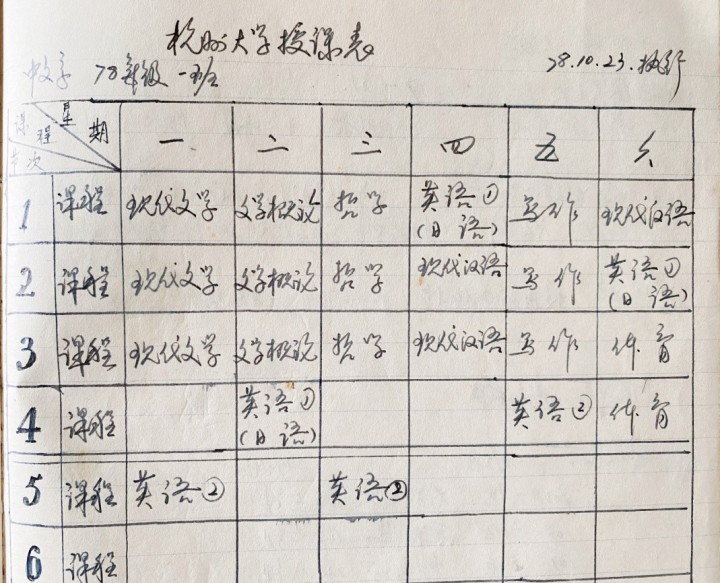 杭州大学授课表
中文系 78年级 一班 78.10.23.执行
星期 课程 节次 一 二 三 四 五 六
1 课程 现代文学 文学概论 哲学 英语① (日语) 写作 现代汉语
2 课程 现代文学 文学概论 哲学 现代汉语 写作 英语① (日语)
3 课程 现代文学 文学概论 哲学 现代汉语 写作 体育
4 课程 英语① (日语) 英语② 体育
5 课程 英语② 英语②
6 课程